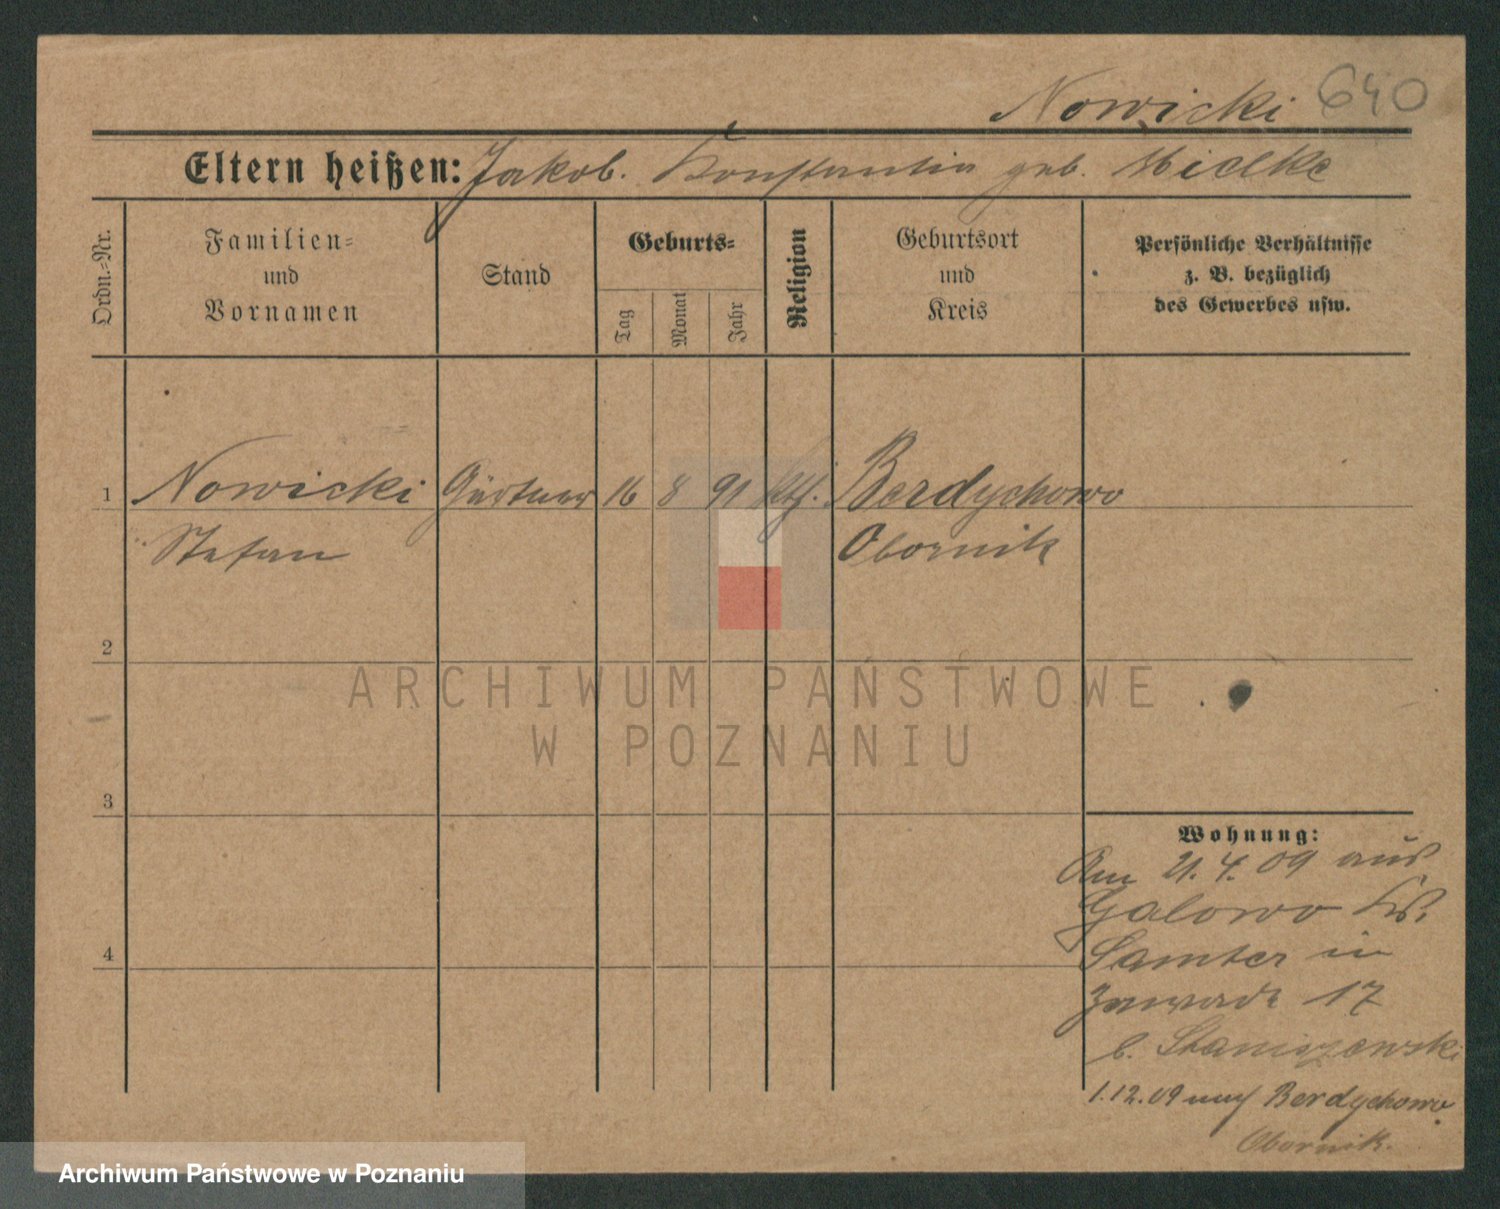 Nowicki 640
Eltern heißen: Jakob. Konstantin geb. Mielke
Ordn.=Nr.
Familien=
und
Vornamen
Stand
Geburts=
Tag
Monat
Jahr
Religion
Geburtsort
und
Kreis
Persönliche Verhältnisse
z. B. bezüglich
des Gewerbes usw.
1 Nowicki Gärtner 16 8 91 kth. Berdychowo
Stefan Obornik
2
3
4
Wohnung:
Am 21. 4. 09 aus
Galowo Krs.
Samter in
Zawade 17
b. Staniszewski
1.12.09 nach Berdychowo
Obornik.
ARCHIWUM PAŃSTWOWE
W POZNANIU
Archiwum Państwowe w Poznaniu